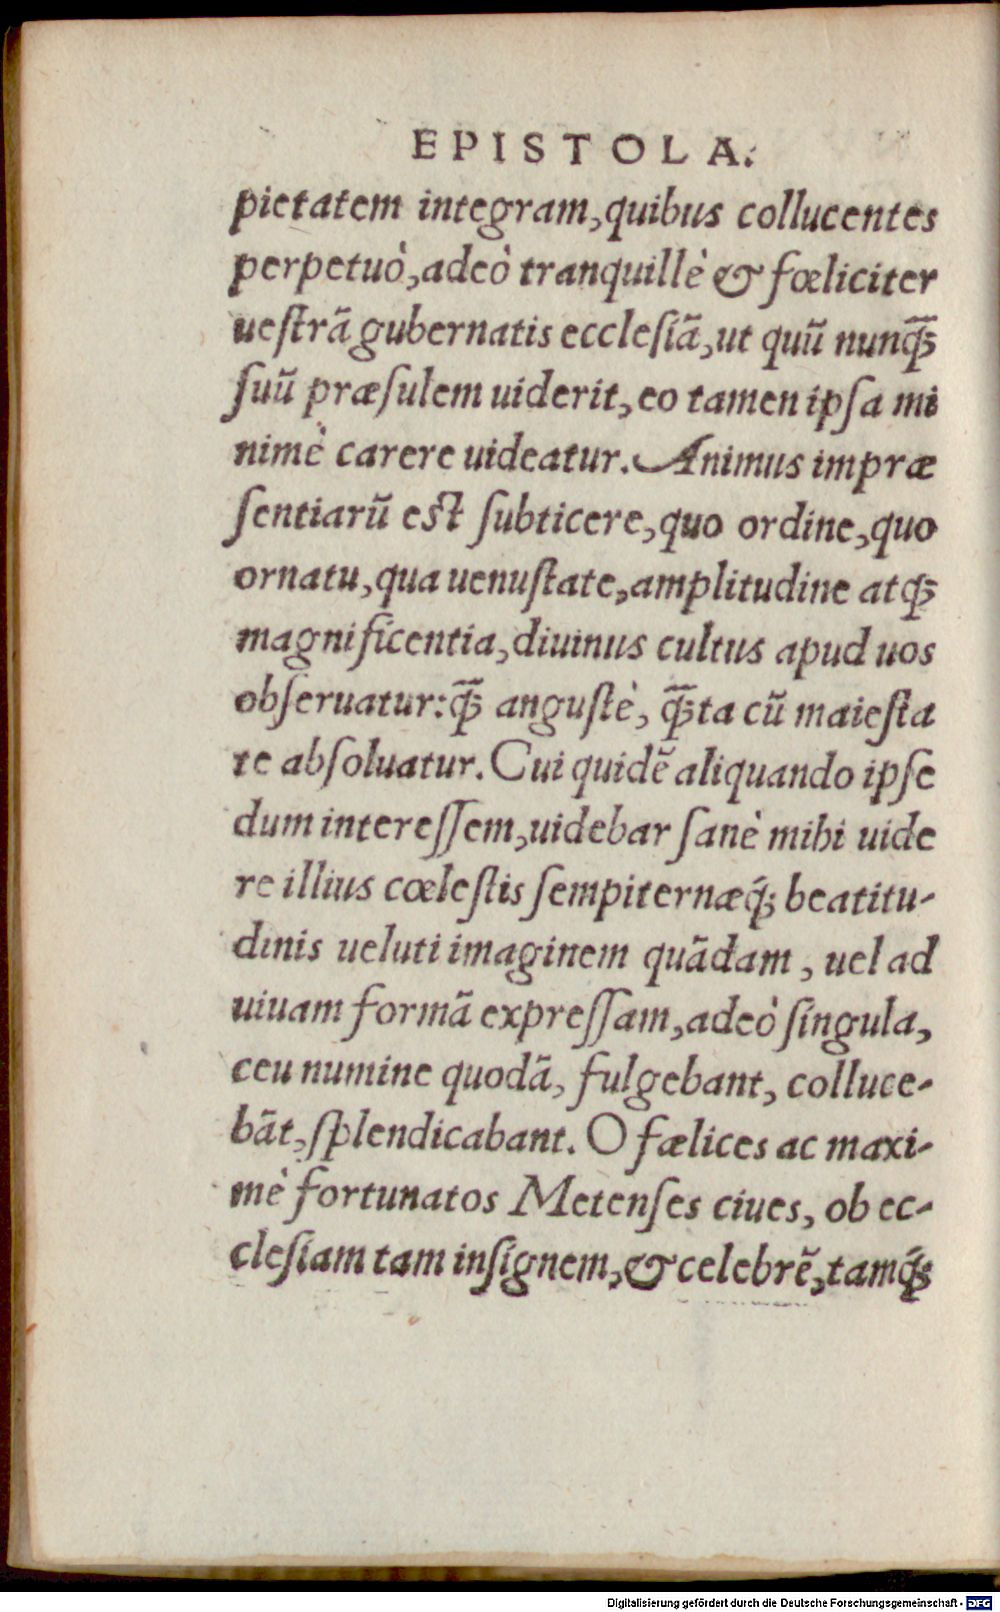 EPISTOLA.
pietatem integram, quibus collucentes
perpetuò, adeò tranquillè & fœliciter
uestrã gubernatis ecclesiã, ut quũ nunq̃ꝫ
suũ præsulem uiderit, eo tamen ipsa mi
nimè carere uideatur. Animus impræ
sentiarũ est subticere, quo ordine, quo
ornatu, qua uenustate, amplitudine atqꝫ
magnificentia, diuinus cultus apud uos
obseruatur: q̃ꝫ angustè, q̃ꝫta cũ maiesta
te absoluatur. Cui quidẽ aliquando ipse
dum interessem, uidebar sanè mihi uide
re illius cœlestis sempiternæq́ꝫ beatitu-
dinis ueluti imaginem quãdam, uel ad
uiuam formã expressam, adeò singula,
ceu numine quodã, fulgebant, colluce-
bãt, splendicabant. O fælices ac maxi-
mè fortunatos Metenses ciues, ob ec-
clesiam tam insignem, & celebrẽ, tamq́ꝫ
Digitalisierung gefördert durch die Deutsche Forschungsgemeinschaft - DFG